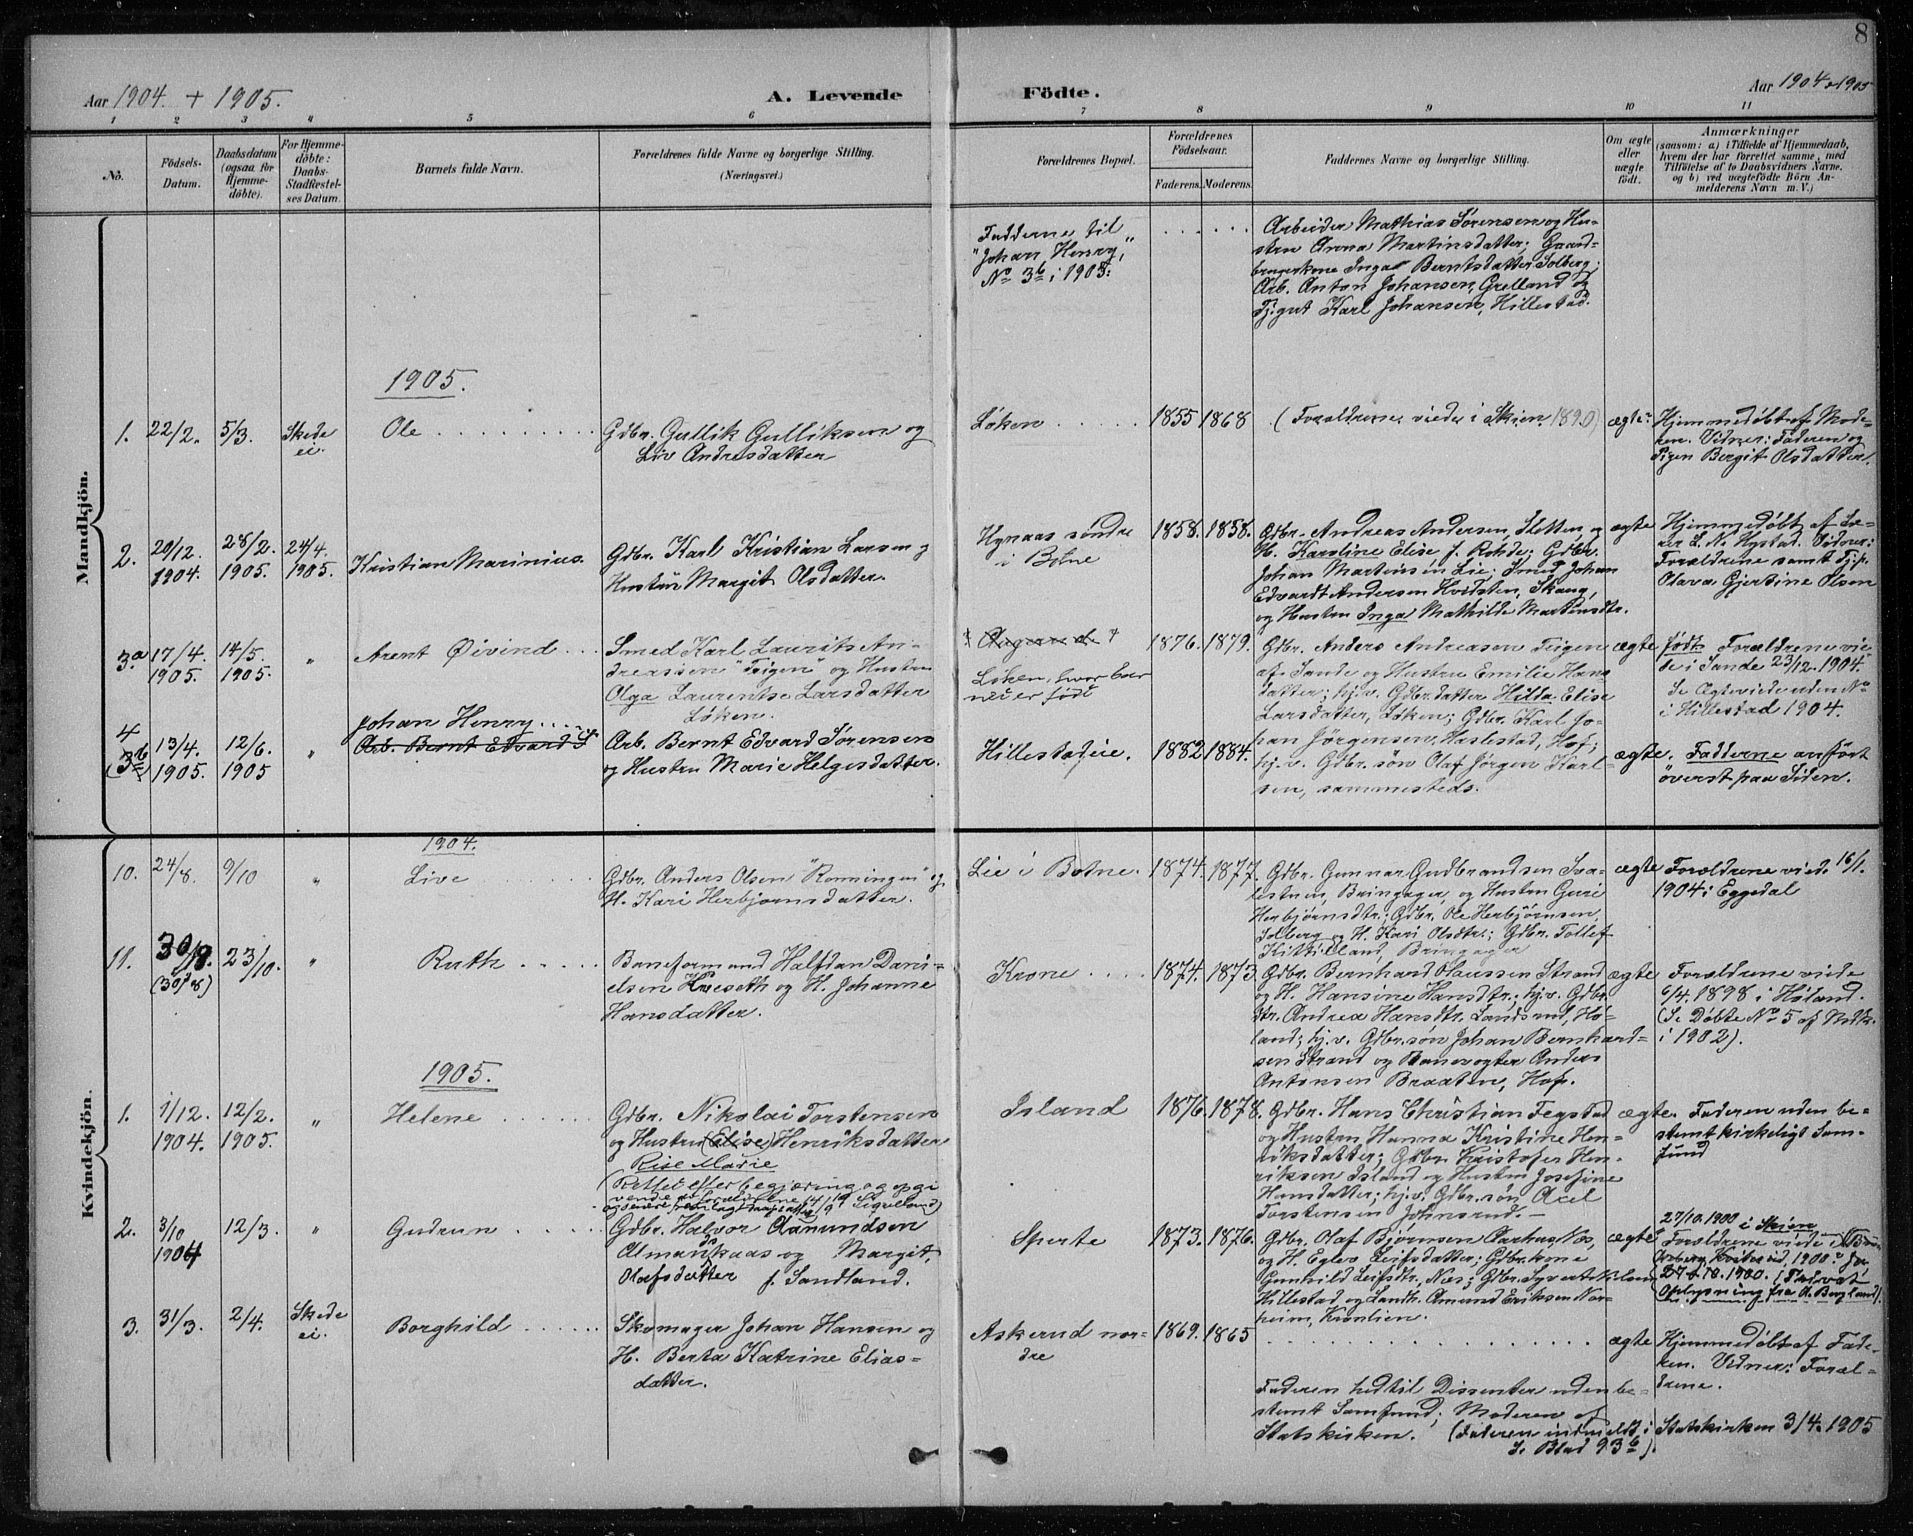 8
Aar 1904 + 1905.
A. Levende Födte.
Aar 1904 + 1905
1 2 3 4 5 6 7 8 9 10 11
No.
Födsels-
Datum.
Daabsdatum
(ogsaa for
Hjemme-
döbte).
For Hjemme-
döbte:
Daabs-
Stadfæstel-
ses Datum.
Barnets fulde Navn.
Forældrenes fulde Navne og borgerlige Stilling.
(Næringsvei.)
Forældrenes Bopæl.
Forældrenes
Födselsaar.
Faderens. Moderens.
Faddernes Navne og borgerlige Stilling.
Om ægte
eller
uægte
födt.
Anmærkninger
(saasom: a) i Tilfælde af Hjemmedaab,
hvem der har forrettet samme, med
Tilföielse af to Daabsvidners Navne,
og b) ved uægtefödte Börn An-
melderens Navn m. V.)
Mandkjön.
Fadderne til
"Johan Henry,"
No 3b i 1905:
Arbeider Mathias Sørensen og Hu-
stru Anna Martinsdatter; Gaard-
brugerkone Inga Berntsdatter Solberg;
Arb. Anton Johansen, Grelland og
Tj.gut Karl Johansen, Hillestad.
1905.
1. 22/2. 5/3. Skede
ei.
Ole
Gdbr. Gullik Gulliksen og
Liv Andresdatter
Løken
1855 1868
(Forældrene viede i Skien 1890)
ægte
Hjemmedøbt af Mode-
ren. Vidner: Faderen og
Pigen Bergit Olsdatter.
2. 20/12.
1904.
28/2.
1905.
24/4.
1905.
Kristian Marinius.
Gdbr. Karl Kristian Larsen og
Hustru Margit Olsdatter.
Hynaas søndre
i Botne
1858. 1858.
Gdbr. Andreas Andersen, Sletten, og
H. Karoline Elise f. Rohde; Gdbr.
Johan Martinsen Lie; Smed Johan
Edvardt Andersen Hvidsten, Skaug,
og Hustru Inga Mathilde Martinsdtr.
ægte
Hjemmedøbt af Læ-
rer L. N. Hystad. Vidner:
Forældrene samt Tj.p.
Olava Gjertine Olsen
3.a 17/4.
1905.
14/5.
1905.
"
Arent Øivind
Smed Karl Laurits An-
dreassen "Teigen" og Hustru
Olga Laurentse Larsdatter
Løken.
Løken, hvor bar
net er født
1876. 1879.
Gdbr. Anders Andreasen Teigen
af Sande og Hustru Emilie Hans
datter; hj.v. Gdbr.datter Hilda Elise
Larsdatter, Løken; Gdbr. Karl Jo-
han Jørgensen, Haslestad, Hof;
hj.v. Gdbr.søn Olaf Jørgen Karl-
sen, sammesteds.
ægte
født. Forældrene vie-
de i Sande 23/12. 1904.
Se Ægteviede uden No
i Hillestad 1904.
4
(3b)
13/4.
1905.
12/6.
1905
"
Johan Henry
Arb. Bernt Edvard S.
Arb. Bernt Edvard Sørensen
og Hustru Marie Helgesdatter.
Hillestadeie.
1882 1884.
ægte.
Fadderne anført
øverst paa Siden.
Kvindekjön.
1904.
10. 24/8. 9/10 "
Live
Gdbr. Anders Olsen "Rønningen" og
H. Kari Herbjørnsdatter.
Lie i Botne.
1874. 1877.
Gdbr. Gunnar Gudbrandsen Sva-
lestuen, Bringager, og Hustru Guri
Herbjørnsdtr.; Gdbr. Ole Herbjørnsen,
Solberg og H. Kari Olsdtr.; Gdbr. Tollef
Kittilland, Bringager
ægte
Forældrene vied. 16/1.
1904 i Eggedal
11. 30/8.
(30/8)
23/10. "
Ruth
Baneformand Halfdan Dani-
elsen Kreseth og H. Johanne
Hansdatter.
Krone
1874. 1873.
Gdbr. Bernhard Olaussen Strand
og H. Hansine Hansdtr.; hj.v. Gdbr.
dtr. Andrea Hansdtr. Landsrud, Hø-
land; hj.v. Gdbr.søn Johan Bernhard-
sen Strand og Banevogter Anders
Antonsen Braaten, Hof.
ægte
Forældrene viede
6/4. 1898 i Høland.
(Se Døbte No 5 af Mdk.
i 1902).
1905.
1. 1/12.
1904.
12/2.
1905.
"
Helene
Gdbr. Nikolai Torstensen
og Hustru (Elise) Henriksdatter
Rise Marie
(Rettet efter begjæring og opgi
vende af forældrene
Island
1876. 1878.
Gdbr. Hans Christian Fegstad
og Hustru Hanna Kristine Hen-
riksdatter; Gdbr. Kristofer Hen-
riksen Island og Hustru Josefine
Hansdatter; hj.v. Gdbr. søn Axel
Torstensen Johnsrud. —
ægte.
Faderen uden be-
stemt kirkeligt Sam-
fund
2. 3/10
1904
12/3. "
Gudrun
Gdbr. Halvor Aamundsen
Almankaas og Margit
Olafsdatter f. Sandland.
Sperte
1873. 1876.
Gdbr. Olaf Bjørnsen Aarhus Næs,
og H. Eglev Leifsdatter; Gdbr.kone
Gunhild Leifsdtr., Næs; Gdbr. Syvert Nilsen
Hillestad og Landh. Amund Eriksen Nor-
heim, Kronlien.
ægte
27/10. 1900 i Skien
Forældrene viede i
1900.
27 10. 1900. (Privat
Oplysning fra A. Bergland).
3. 31/3. 2/4. Skede
ei.
Borghild
Skomager Johan Hansen og
H. Berta Katrine Elias-
datter.
Askerud nor-
dre
1869. 1865
ægte
Hjemmedøbt af Fade-
ren. Vidner: Foræl-
drene.
Faderen hidtil Dissenter uden be-
stemt Samfund; Moderen af
Statskirken. (Faderen indmeldt i Statskirken 3/4. 1905
S. Blad 93b).